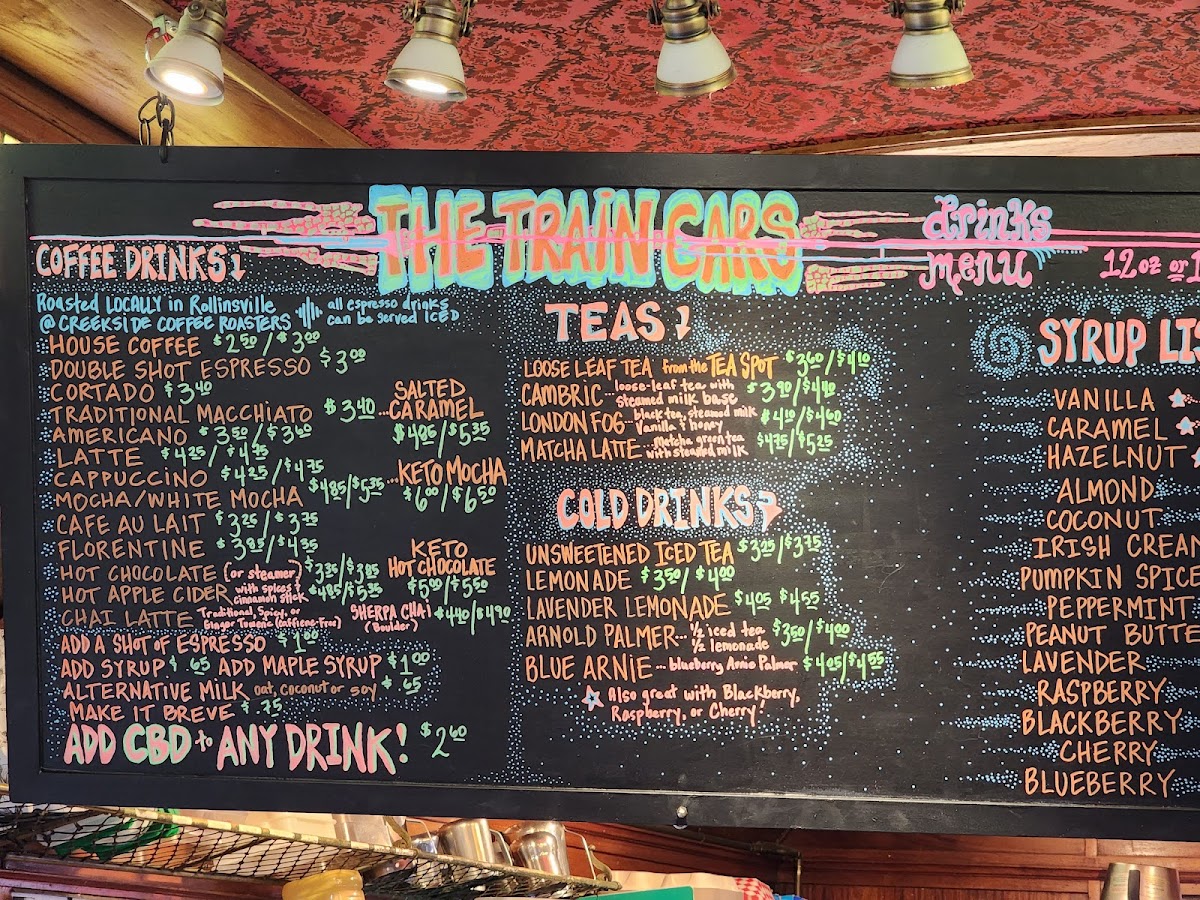 THE TRAIN CARS
drinks
menu
12oz or
COFFEE DRINKS
Roasted LOCALLY in Rollinsville
@ CREEKSIDE COFFEE ROASTERS
all espresso drinks
can be served ICED
HOUSE COFFEE $2.50/$3.00
DOUBLE SHOT ESPRESSO $3.00
CORTADO $3.40
TRADITIONAL MACCHIATO $3.40
AMERICANO $3.50/$3.60
LATTE $4.25/$4.75
CAPPUCCINO $4.25/$4.75
MOCHA/WHITE MOCHA $4.85/$5.35
...SALTED
CARAMEL
$4.85/$5.35
...KETO MOCHA
$6.00/$6.50
CAFE AU LAIT $3.25/$3.75
FLORENTINE $3.85/$4.35
HOT CHOCOLATE (or steamer) $3.35/$3.85
KETO
HOT CHOCOLATE
$5.00/$5.50
HOT APPLE CIDER with spices & cinnamon stick $4.85/$5.35
CHAI LATTE Traditional, Spicy, or
Ginger Tumeric (caffeine-free)
SHERPA CHAI
(Boulder)
$4.40/$4.90
ADD A SHOT OF ESPRESSO $1.00
ADD SYRUP $.65 ADD MAPLE SYRUP $1.00
ALTERNATIVE MILK oat, coconut or soy $.65
MAKE IT BREVE $.75
ADD CBD to ANY DRINK! $2.60
TEAS
LOOSE LEAF TEA from the TEA SPOT $3.60/$4.10
CAMBRIC loose-leaf tea with
steamed milk base $3.90/$4.40
LONDON FOG black tea, steamed milk
Vanilla & honey $4.10/$4.60
MATCHA LATTE... Matcha green tea
with steamed milk $4.75/$5.25
COLD DRINKS
UNSWEETENED ICED TEA $3.25/$3.75
LEMONADE $3.50/$4.00
LAVENDER LEMONADE $4.05 $4.55
ARNOLD PALMER... ½ iced tea
½ lemonade $3.50/$4.00
BLUE ARNIE... blueberry Arnie Palmer $4.05/$4.55
Also great with Blackberry,
Raspberry, or Cherry!
SYRUP LIS
VANILLA
CARAMEL
HAZELNUT
ALMOND
COCONUT
IRISH CREAM
PUMPKIN SPICE
PEPPERMINT
PEANUT BUTTE
LAVENDER
RASPBERRY
BLACKBERRY
CHERRY
BLUEBERRY